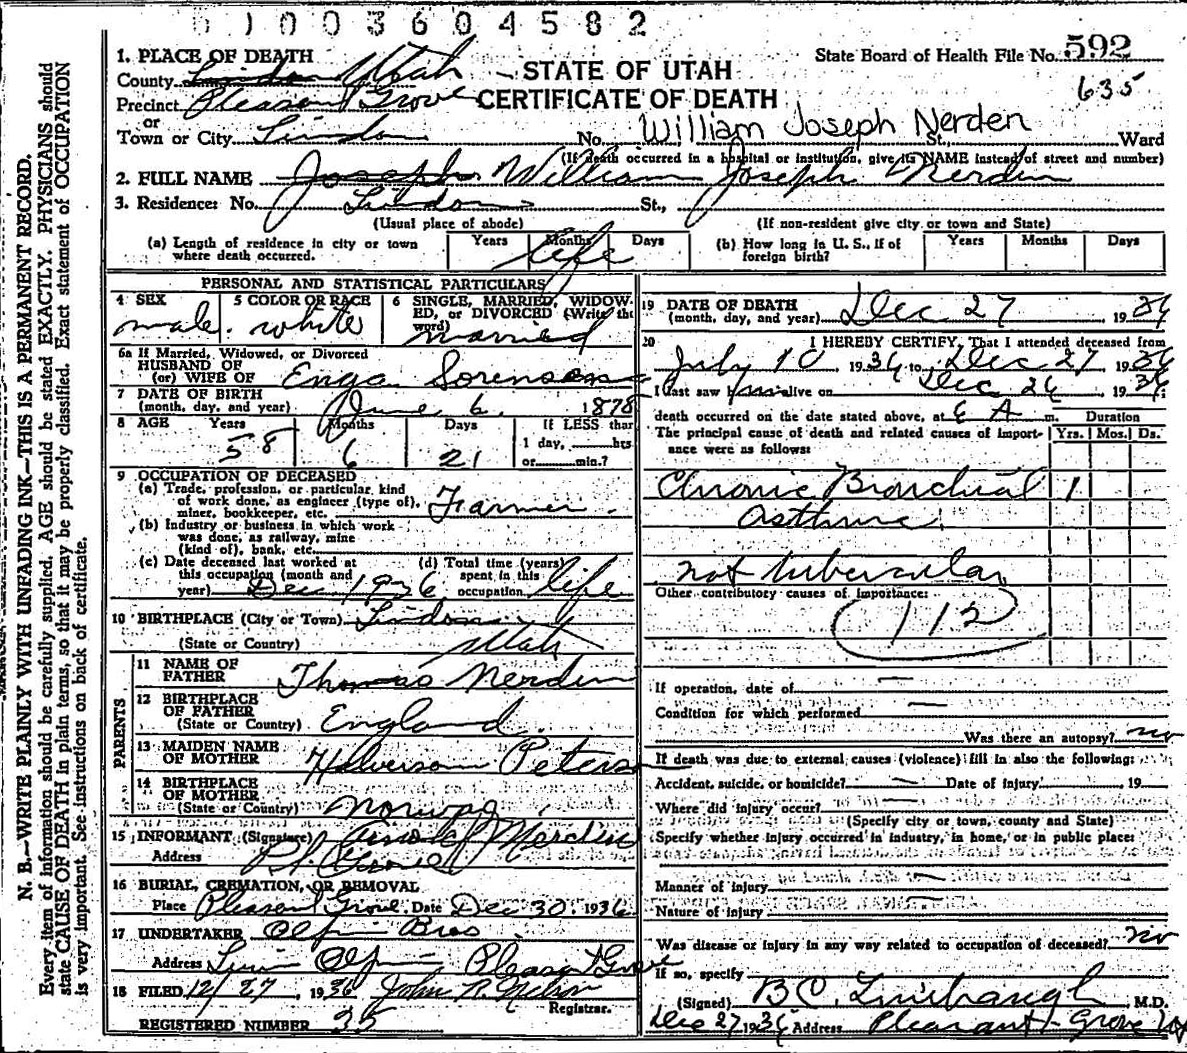 01003604582
State Board of Health File No. 592
635
STATE OF UTAH
CERTIFICATE OF DEATH
1. PLACE OF DEATH
County Lindon Utah
Precinct Pleasant Grove
or
Town or City Lindon No. William Joseph Nerden St., Ward
(If death occurred in a hospital or institution, give its NAME instead of street and number)
2. FULL NAME Joseph William Joseph Nerdin
3. Residence: No. Lindon St.,
(Usual place of abode) (If non-resident give city or town and State)
(a) Length of residence in city or town where death occurred. Years Months Days life
(b) How long in U. S., if of foreign birth? Years Months Days
PERSONAL AND STATISTICAL PARTICULARS
4 SEX male
5 COLOR OR RACE white
6 SINGLE, MARRIED, WIDOWED, or DIVORCED (Write the word) married
6a If Married, Widowed, or Divorced
HUSBAND OF
(or) WIFE OF Enga Sorensen
7 DATE OF BIRTH
(month, day, and year) June 6 1878
8 AGE Years Months Days If LESS than
58 6 21 1 day, hrs
or min.?
9 OCCUPATION OF DECEASED
(a) Trade, profession, or particular kind
of work done, as engineer (type of),
miner, bookkeeper, etc. Farmer
(b) Industry or business in which work
was done, as railway, mine
(kind of), bank, etc.
(c) Date deceased last worked at
this occupation (month and
year) Dec. 1936
(d) Total time (years)
spent in this
occupation life
10 BIRTHPLACE (City or Town) Lindon
(State or Country) Utah
PARENTS
11 NAME OF
FATHER Thomas Nerdin
12 BIRTHPLACE
OF FATHER
(State or Country) England
13 MAIDEN NAME
OF MOTHER Halverson Peterson
14 BIRTHPLACE
OF MOTHER
(State or Country) Norway
15 INFORMANT (Signature) Nerdin
Address Pl. Grove
16 BURIAL, CREMATION, OR REMOVAL
Place Pleasant Grove Date Dec 30, 1936
17 UNDERTAKER Olpin Bros
Address Olpin Pleasant Grove
18 FILED 12/27, 1936 John R. Nelson
Registrar.
REGISTERED NUMBER 35
19 DATE OF DEATH
(month, day, and year) Dec 27 1936
20 I HEREBY CERTIFY, That I attended deceased from
July 10 1936 to Dec 27 1936
I last saw him alive on Dec 26 1936;
death occurred on the date stated above, at A m. Duration
The principal cause of death and related causes of importance were as follows: Yrs. Mos. Ds.
Chronic Bronchial 1
asthma
not tubercular
Other contributory causes of importance:
112
If operation, date of —
Condition for which performed —
Was there an autopsy? no
If death was due to external causes (violence) fill in also the following:
Accident, suicide, or homicide? — Date of injury 19
Where did injury occur?
(Specify city or town, county and State)
Specify whether injury occurred in industry, in home, or in public place:
Manner of injury
Nature of injury
Was disease or injury in any way related to occupation of deceased? no
If so, specify
(Signed) B C Linebaugh M.D.
Dec 27 1936 Address Pleasant Grove Ut
N. B.—WRITE PLAINLY WITH UNFADING INK—THIS IS A PERMANENT RECORD.
Every item of information should be carefully supplied. AGE should be stated EXACTLY. PHYSICIANS should
state CAUSE OF DEATH in plain terms, so that it may be properly classified. Exact statement of OCCUPATION
is very important. See instructions on back of certificate.